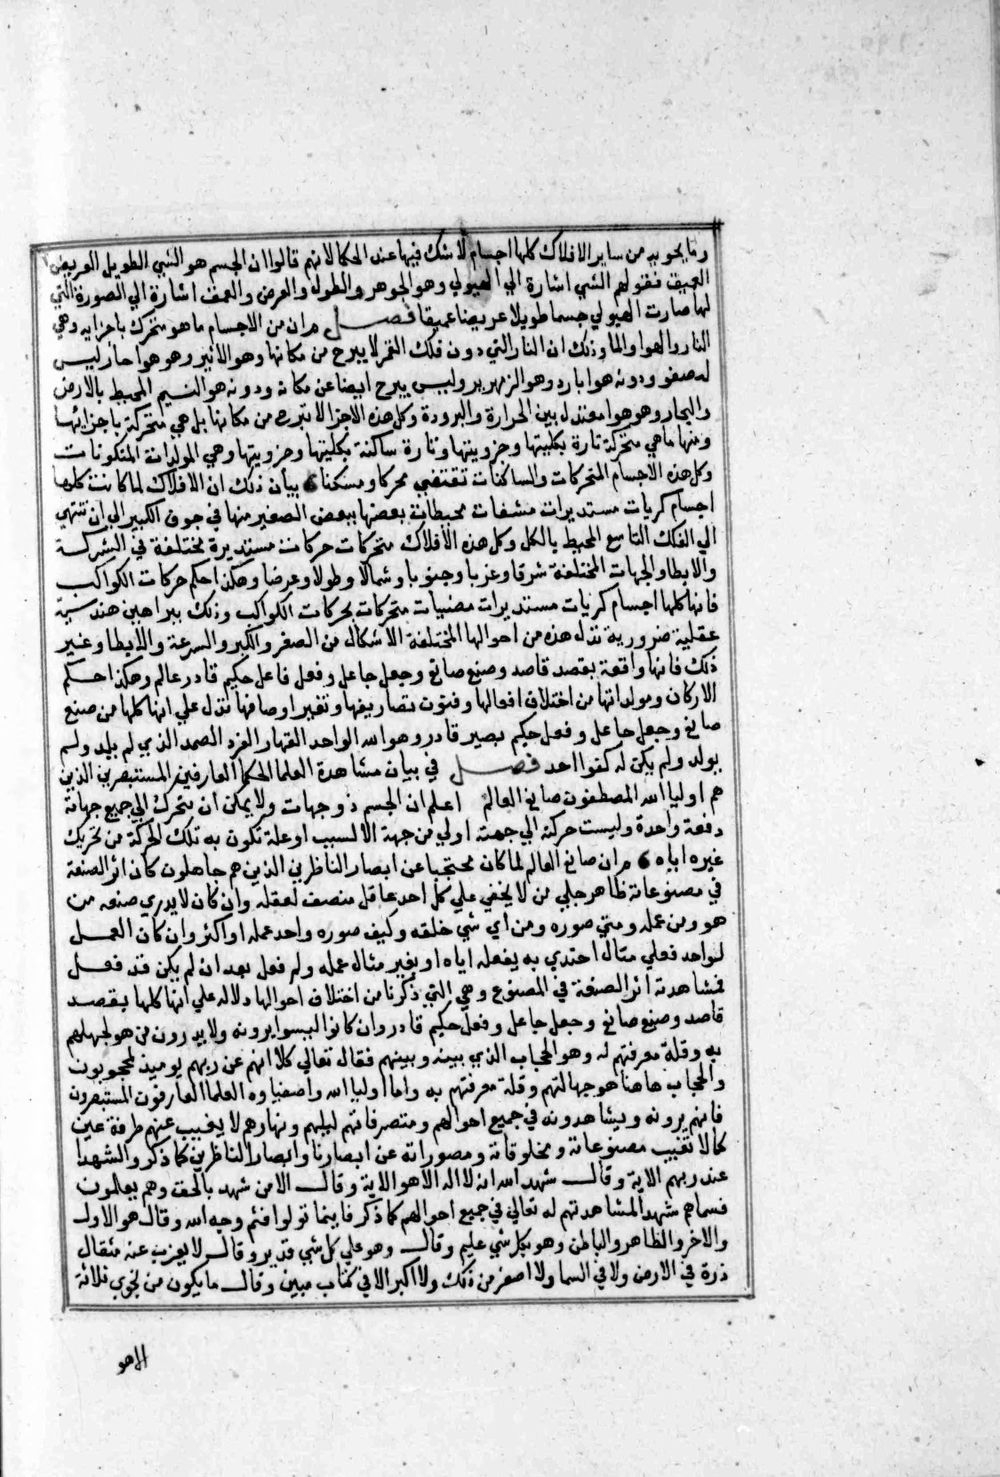 وما يحويه من ساير الافلاك كلها اجسام لا شك فيها عند الحكما لانهم قالوا ان الجسم هو الشي الطويل العريض
العميق فقولهم الشي اشارة الي الهيولي وهو الجوهر والطول والعرض والعمق اشارة الي الصورة التي
لها صارت الهيولي جسما طويلا عريضا عميقا فصل وان من الاجسام ما هو متحرك باجزايه وهي
النار والهوا والما وذلك ان النار التي دون فلك القمر لا يبرح من مكانها وهو الاثير وهو هوا حار ليس
له صفو ودونه هوا بارد وهو الزمهرير وليس يبرح ايضا عن مكانه ودونه هو النسيم المحيط بالارض
والبحار وهو هوا معتدل بين الحرارة والبرودة وكل هذه الاجزا لا تبرح من مكانها بل هي متحركة باجزائها
ومنها ما هي متحركة تارة بكليتها وجزويتها وتارة ساكنة بكليتها وجزويتها وهي المولدات المتكونات
وكل هذه الاجسام المتحركات والساكنات تقتضي محركا ومسكنا بيان ذلك ان الافلاك لما كانت كلها
اجسام كريات مستديرات مشفات محيطات بعضها ببعض الصغير منها في جوف الكبير الي ان تنتهي
الي الفلك التاسع المحيط بالكل وكل هذه الافلاك متحركات حركات مستديرة مختلفة في السرعة
والابطا والجهات المختلفة شرقا وغربا وجنوبا وشمالا وطولا وعرضا وهكذا حكم حركات الكواكب
فانها كلها اجسام كريات مستديرات مضيات متحركات بحركات الكواكب وذلك ببراهين هندسية
عقلية ضرورية تدل هذه من احوالها المختلفة الاشكال من الصغر والكبر والسرعة والابطا وغير
ذلك فانها واقعة بقصد قاصد وصنع صانع وجعل جاعل وفعل فاعل حكيم قادر عالم وهكذا حكم
الاركان ومولداتها من اختلاف افعالها وفنون تصاريفها وتغير اوصافها تدل علي انها كلها من صنع
صانع وجعل جاعل وفعل حكيم بصير قادر وهو الله الواحد القهار الفرد الصمد الذي لم يلد ولم
يولد ولم يكن له كفوا احد فصل في بيان مشاهدة العلما الحكما العارفين المستبصرين الذين
هم اوليا الله المصطفون صانع العالم اعلم ان الجسم ذو جهات ولا يمكن ان يتحرك الي جميع جهاته
دفعة واحدة وليست حركته الي جهة اولي من جهة الا لسبب او علة تكون به تلك الحركة من تحريك
غيره اياه وان صانع العالم لما كان محتجبا عن ابصار الناظرين الذين هم جاهلون كان اثر الصنعة
في مصنوعاته ظاهر جلي من لا يخفي علي كل احد عاقل منصف لعقله وان كان لا يدري صنعه من
هو ومن عمله ومتي صوره ومن اي شي خلقه وكيف صوره واحد عمله او اكثر وان كان العمل
لواحد فعلي مثال احتدي به يفعله اياه او بغير مثال عمله ولم فعل بعد ان لم يكن قد فعل
فمشاهدته اثر الصنعة في المصنوع وهي التي ذكرنا من اختلاف احوالها دلاله علي انها كلها بقصد
قاصد وصنع صانع وجعل جاعل وفعل حكيم قادر وان كانوا ليسوا يرونه ولا يدرون من هو لجهلهم
به وقلة معرفتهم له وهو الحجاب الذي بينه وبينهم فقال تعالي كلا انهم عن ربهم يوميذ لمحجوبون
والحجاب هاهنا هو جهالتهم وقلة معرفتهم به واما اوليا الله واصفياوه العلما العارفون المستبصرون
فانهم يرونه ويشاهدونه في جميع احوالهم ومتصرفاتهم ليلهم ونهارهم لا يغيب عنهم طرفة عين
كما لا تغيب مصنوعاته ومخلوقاته ومصوراته عن ابصارنا وابصار الناظرين كما ذكر والشهدا
عند ربهم الاية وقال شهد الله انه لا اله الا هو الاية وقال الا من شهد بالحق وهم يعلمون
فسماهم شهدا لمشاهدتهم له تعالي في جميع احوالهم كما ذكر فاينما تولوا فثم وجه الله وقال هو الاول
والاخر والظاهر والباطن وهو بكل شي عليم وقال وهو علي كل شي قدير وقال لا يعزب عنه مثقال
ذرة في الارض ولا في السما ولا اصغر من ذلك ولا اكبر الا في كتاب مبين وقال ما يكون من نجوي ثلاثة
الا هو